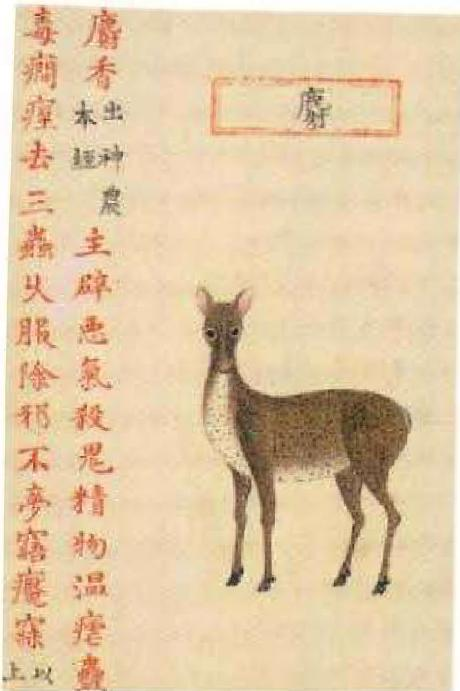 麝
麝香出神農本經主辟悪氣殺鬼精物温瘧蠱
毒癇痙去三蟲久服除邪不夢寤魘寐以上